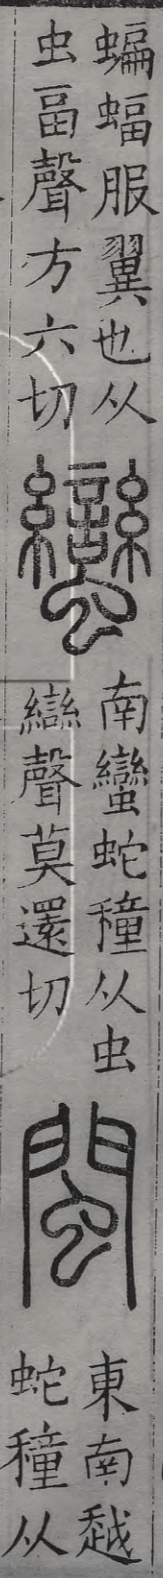 蝙蝠服翼也从
虫畐聲方六切
蠻
南蠻蛇穜从虫
䜌聲莫還切
閩
東南越
蛇穜从